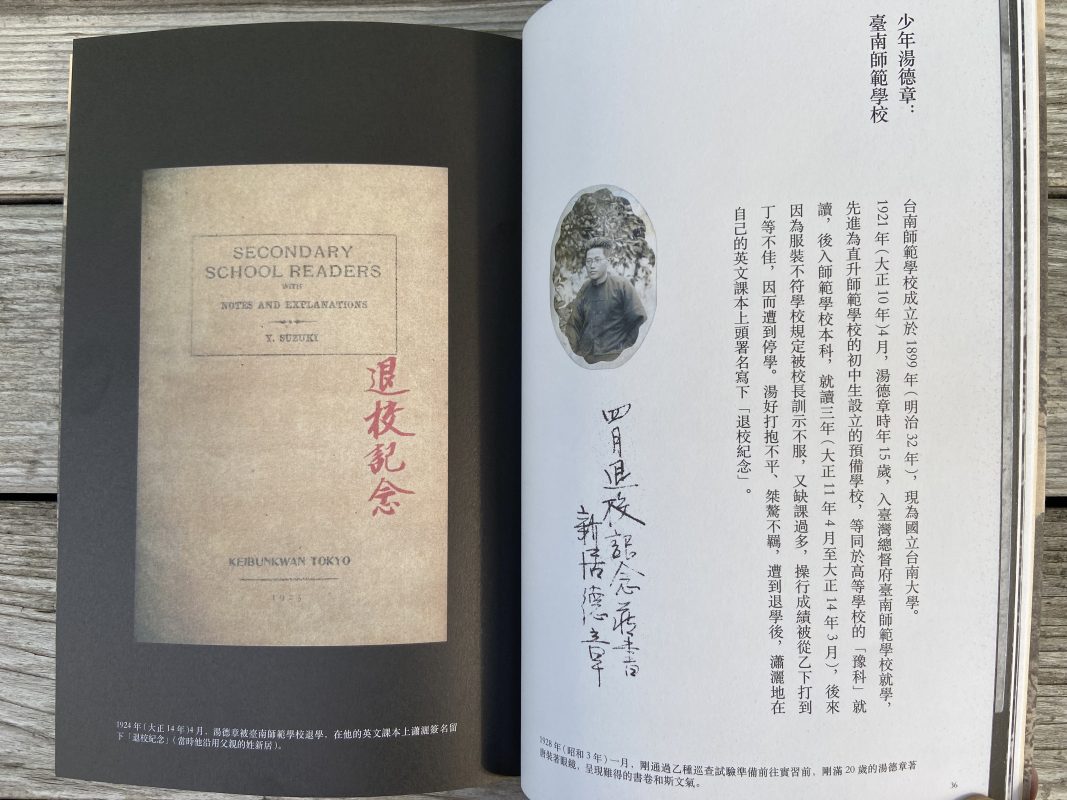 少年湯德章：
臺南師範學校
台南師範學校成立於 1899 年（明治 32 年），現為國立台南大學。
1921 年（大正 10 年）4 月，湯德章時年 15 歲，入臺灣總督府臺南師範學校就學，
先進為直升師範學校的初中生設立的預備學校，等同於高等學校的「豫科」就
讀，後入師範學校本科，就讀三年（大正 11 年 4 月至大正 14 年 3 月），後來
因為服裝不符學校規定被校長訓示不服，又缺課過多，操行成績被從乙下打到
丁等不佳，因而遭到停學。湯好打抱不平、桀驁不羈，遭到退學後，瀟灑地在
自己的英文課本上頭署名寫下「退校紀念」。
四月退校記念藏書
新居德章
1928 年（昭和 3 年）一月，剛通過乙種巡查試驗準備前往實習前，剛滿 20 歲的湯德章著
唐裝著眼鏡，呈現難得的書卷和斯文氣。
36
SECONDARY
SCHOOL READERS
WITH
NOTES AND EXPLANATIONS
Y. SUZUKI
退校記念
KEIBUNKWAN TOKYO
1924 年（大正 14 年）4 月，湯德章被臺南師範學校退學，在他的英文課本上瀟灑簽名留
下「退校紀念」（當時他沿用父親的姓新居）。